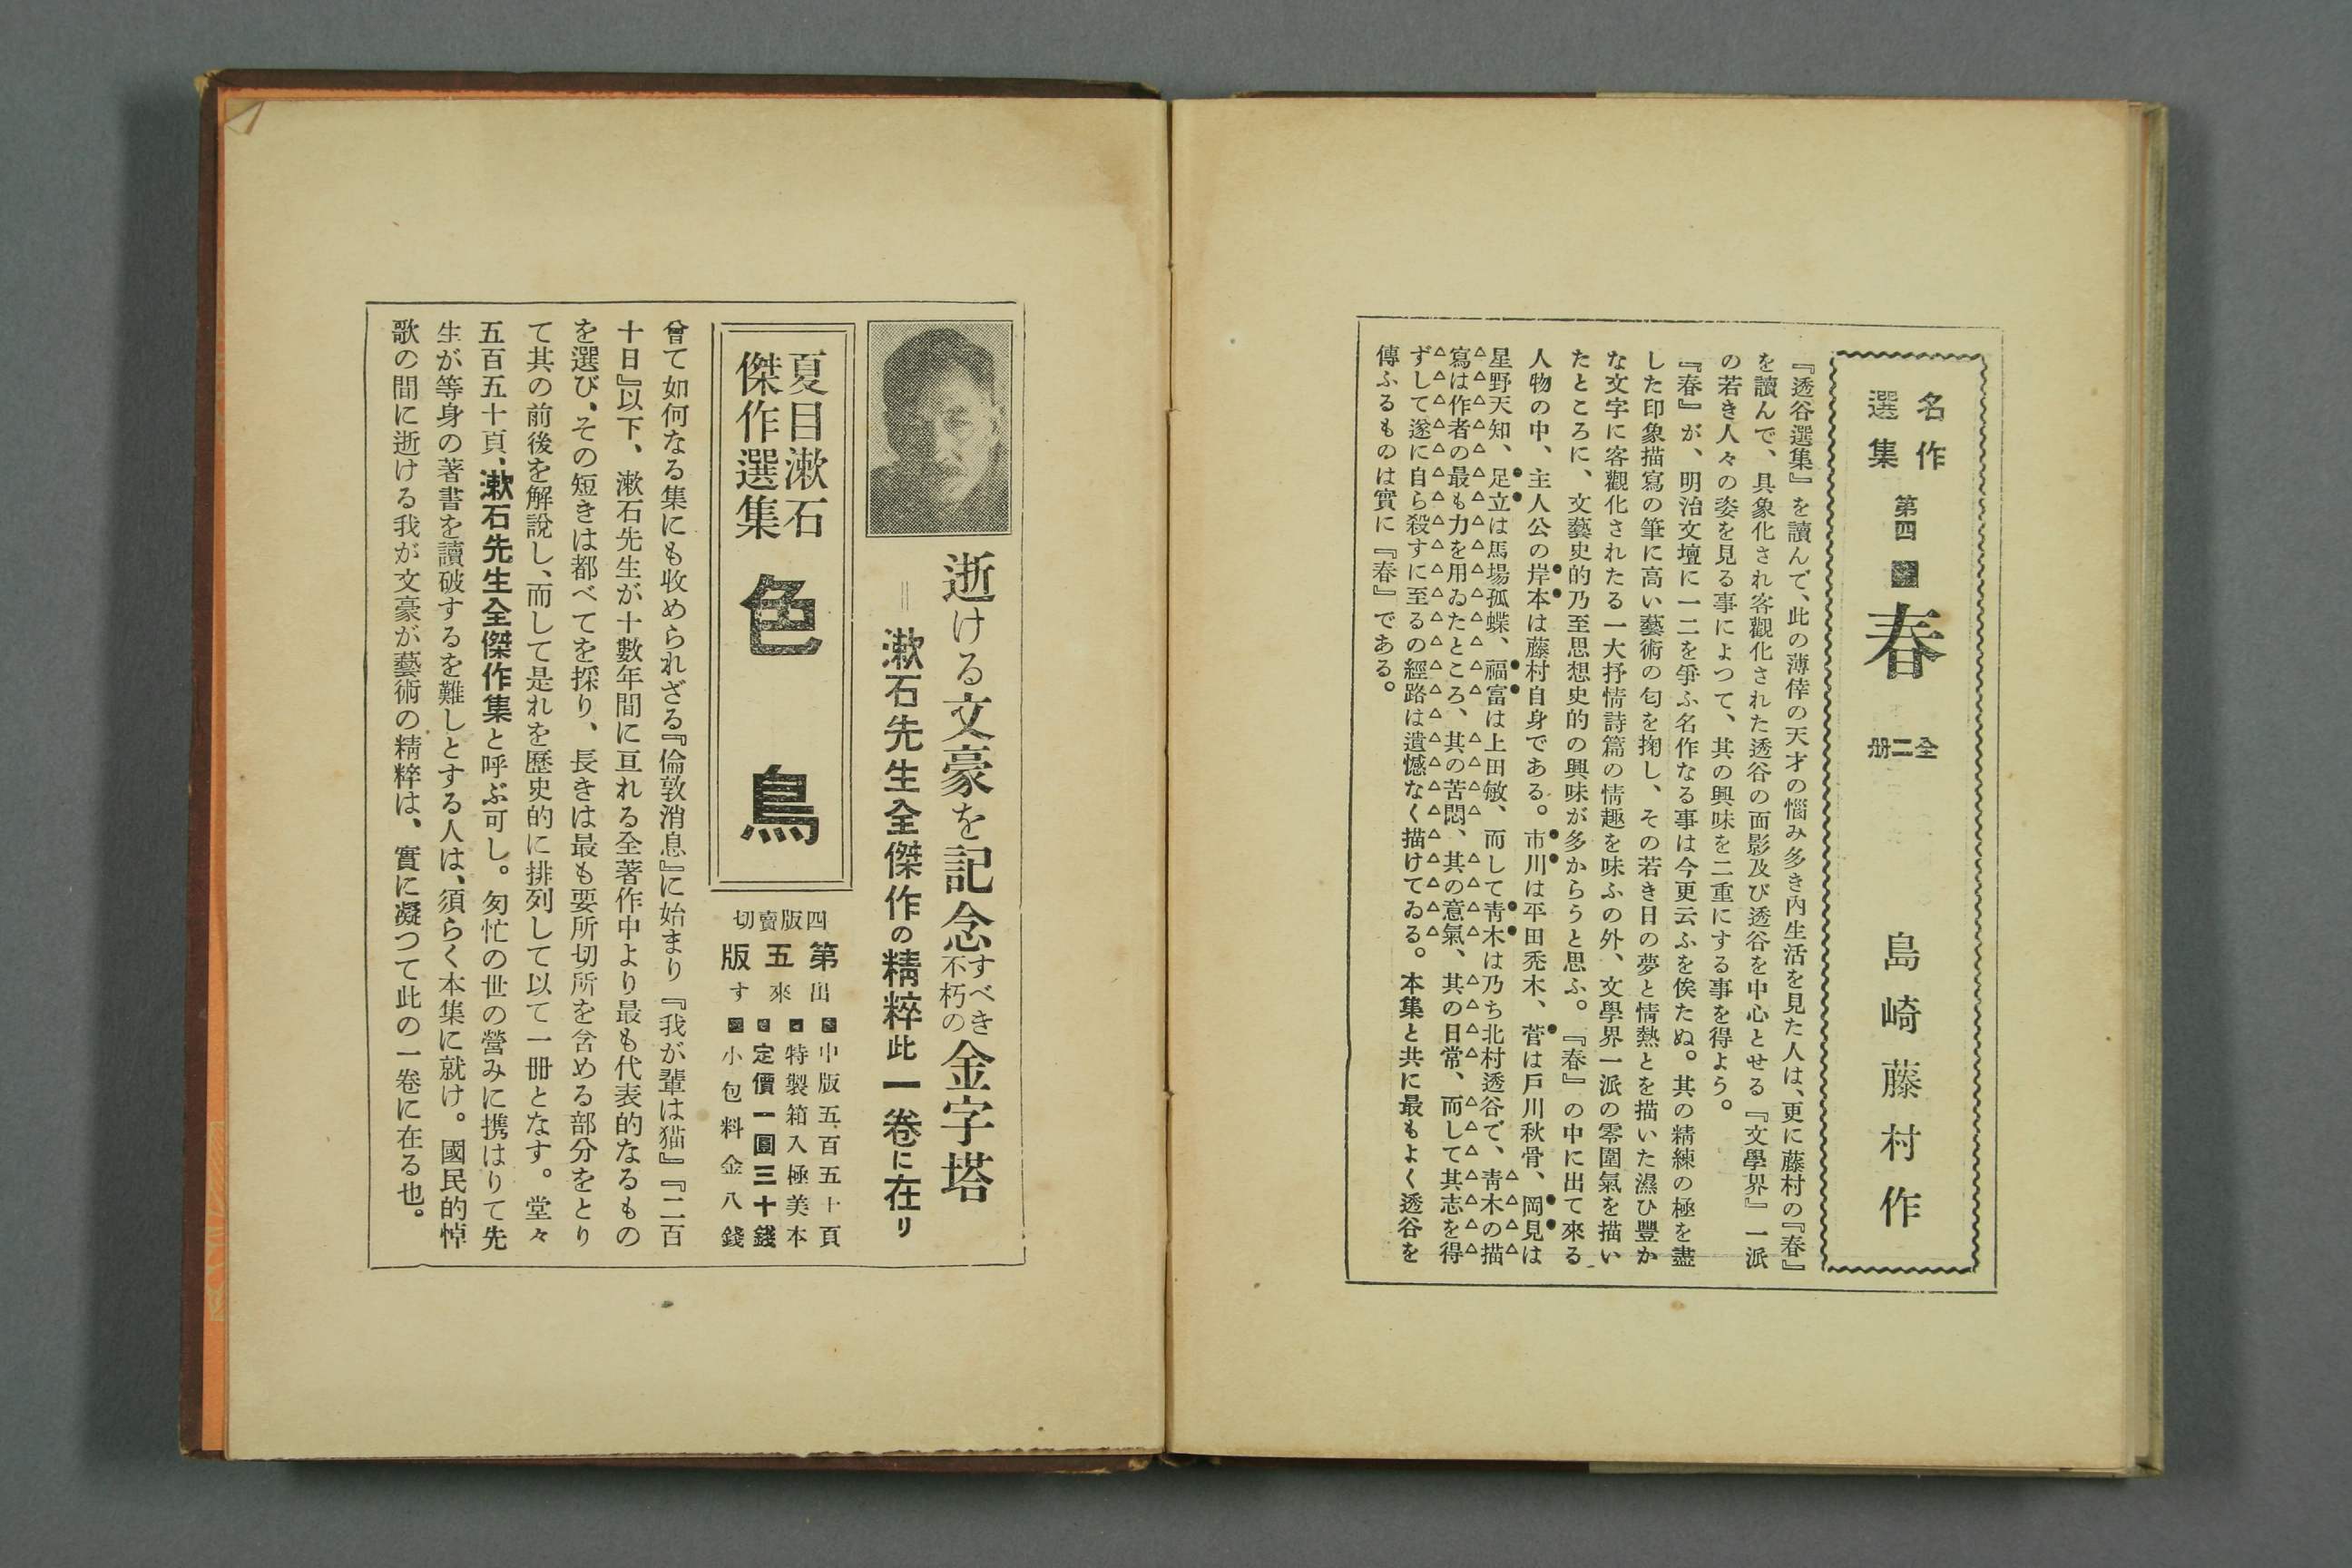 名作
選集
第四
春
全二册
島崎藤村作
『透谷選集』を讀んで、此の薄倖の天才の惱み多き內生活を見た人は、更に藤村の『春』
を讀んで、具象化され客觀化された透谷の面影及び透谷を中心とせる『文學界』一派
の若き人々の姿を見る事によつて、其の興味を二重にする事を得よう。
『春』が、明治文壇に一二を爭ふ名作なる事は今更云ふを俟たぬ。其の精練の極を盡
した印象描寫の筆に高い藝術の匂を掬し、その若き日の夢と情熱とを描いた濕ひ豐か
な文字に客觀化されたる一大抒情詩篇の情趣を味ふの外、文學界一派の零圍氣を描い
たところに、文藝史的乃至思想史的の興味が多からうと思ふ。『春』の中に出て來る
人物の中、主人公の岸本は藤村自身である。市川は平田禿木、菅は戸川秋骨、岡見は
星野天知、足立は馬場孤蝶、福富は上田敏、而して靑木は乃ち北村透谷で、靑木の描
寫は作者の最も力を用ゐたところ、其の苦悶、其の意氣、其の日常、而して其志を得
ずして遂に自ら殺すに至るの經路は遺憾なく描けてゐる。本集と共に最もよく透谷を
傳ふるものは實に『春』である。
逝ける文豪を記念すべき不朽の金字塔
＝漱石先生全傑作の精粹此一卷に在り
夏目漱石
傑作選集
色鳥
四版賣切
第五版
出來す
中版五百五十頁
特製箱入極美本
定價一圓三十錢
小包料金八錢
曾て如何なる集にも收められざる『倫敦消息』に始まり『我が輩は猫』『二百
十日』以下、漱石先生が十數年間に亘れる全著作中より最も代表的なるもの
を選び、その短きは都べてを採り、長きは最も要所切所を含める部分をとり
て其の前後を解說し、而して是れを歷史的に排列して以て一冊となす。堂々
五百五十頁、漱石先生全傑作集と呼ぶ可し。匆忙の世の營みに携はりて先
生が等身の著書を讀破するを難しとする人は、須らく本集に就け。國民的悼
歌の間に逝ける我が文豪が藝術の精粹は、實に凝つて此の一卷に在る也。